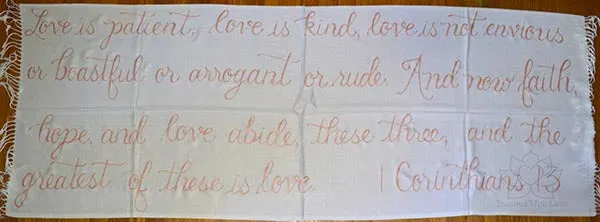 Love is patient, love is kind, love is not envious
or boastful or arrogant or rude. And now faith,
hope, and love abide, these three, and the
greatest of these is love. 1 Corinthians 13